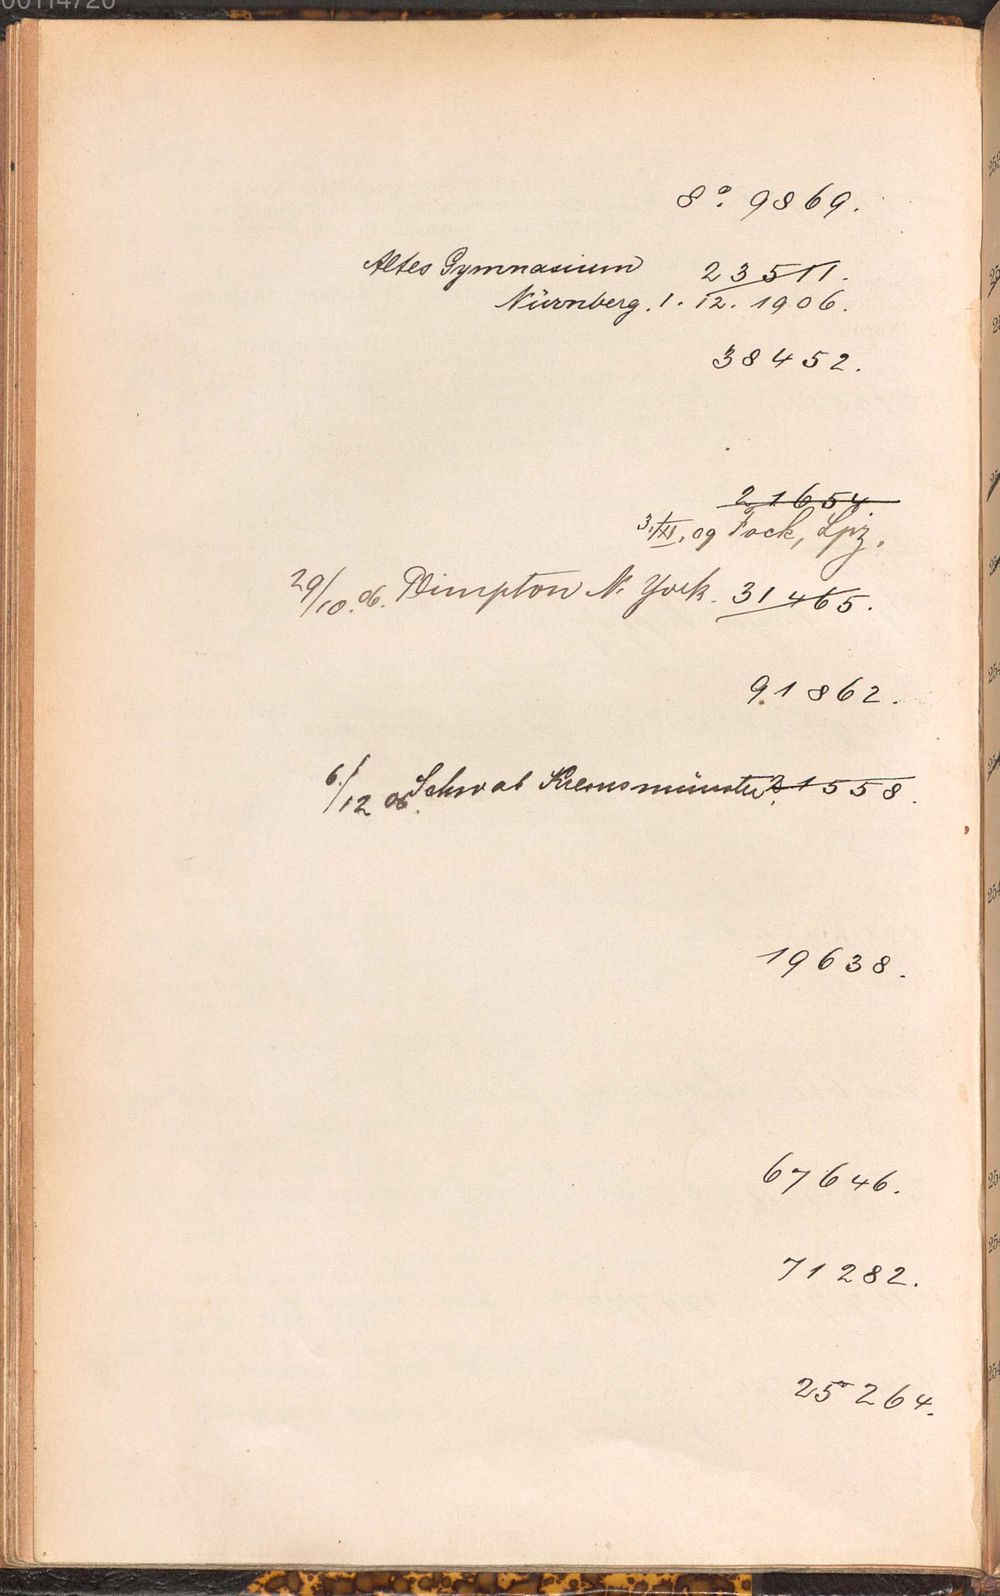 00114720
8°. 9869.
Altes Gymnasium 23511.
Nürnberg. 1. 12. 1906.
38452.
21654.
3./XI. 09 Fock, Lpz.
29/10. 06. Dimpton N. York. 31465.
91862.
6./12 06. Schwab Kremsmünster. 21558.
19638.
67646.
71282.
25264.